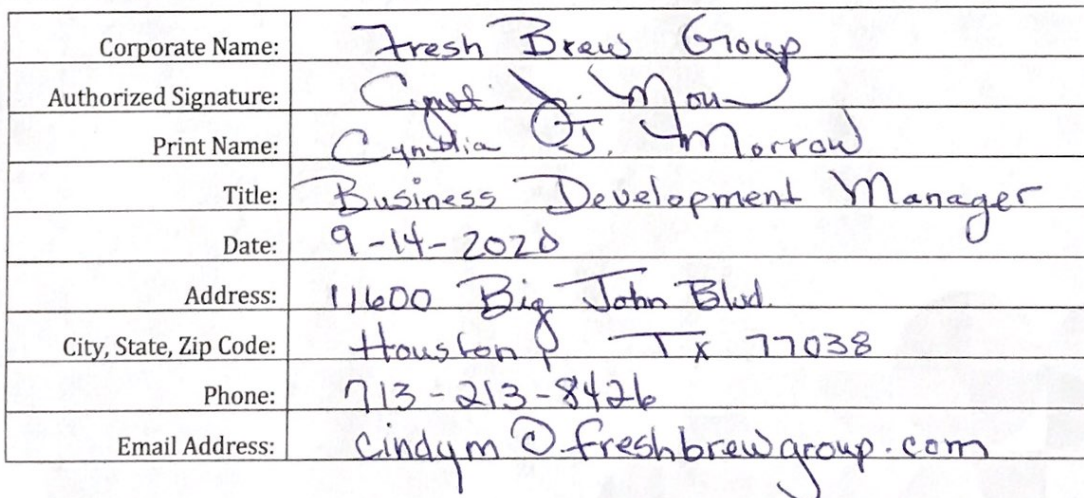 Corporate Name: Fresh Brew Group
Authorized Signature: Cynthia J. Morrow
Print Name: Cynthia J. Morrow
Title: Business Development Manager
Date: 9-14-2020
Address: 11600 Big John Blvd.
City, State, Zip Code: Houston, TX 77038
Phone: 713-213-8426
Email Address: cindym@freshbrewgroup.com